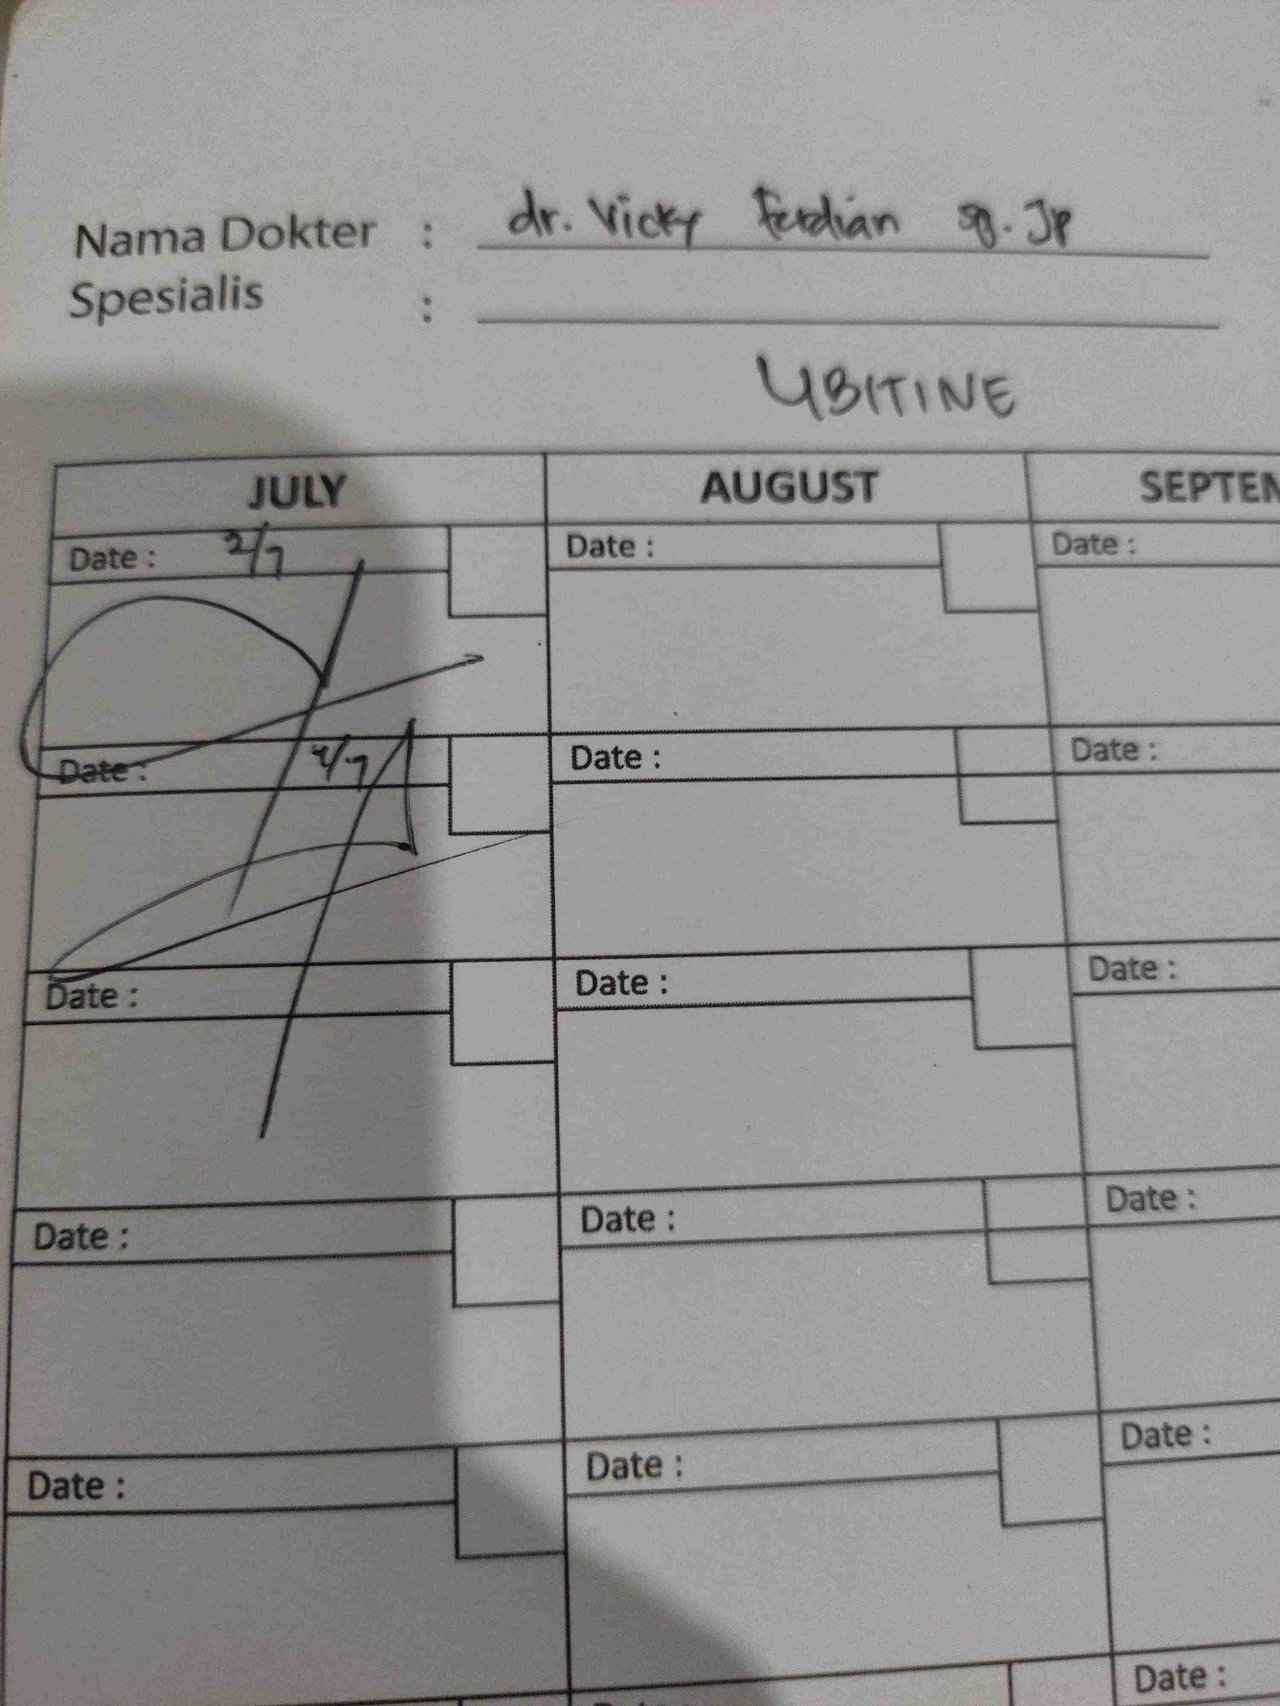 Nama Dokter : dr. Vicky Ferdian sp. JP
Spesialis :
UBITINE
JULY AUGUST SEPTEM
Date : 2/7 Date : Date :
Date : 4/7 Date : Date :
Date : Date : Date :
Date : Date : Date :
Date : Date : Date :
Date : Date :